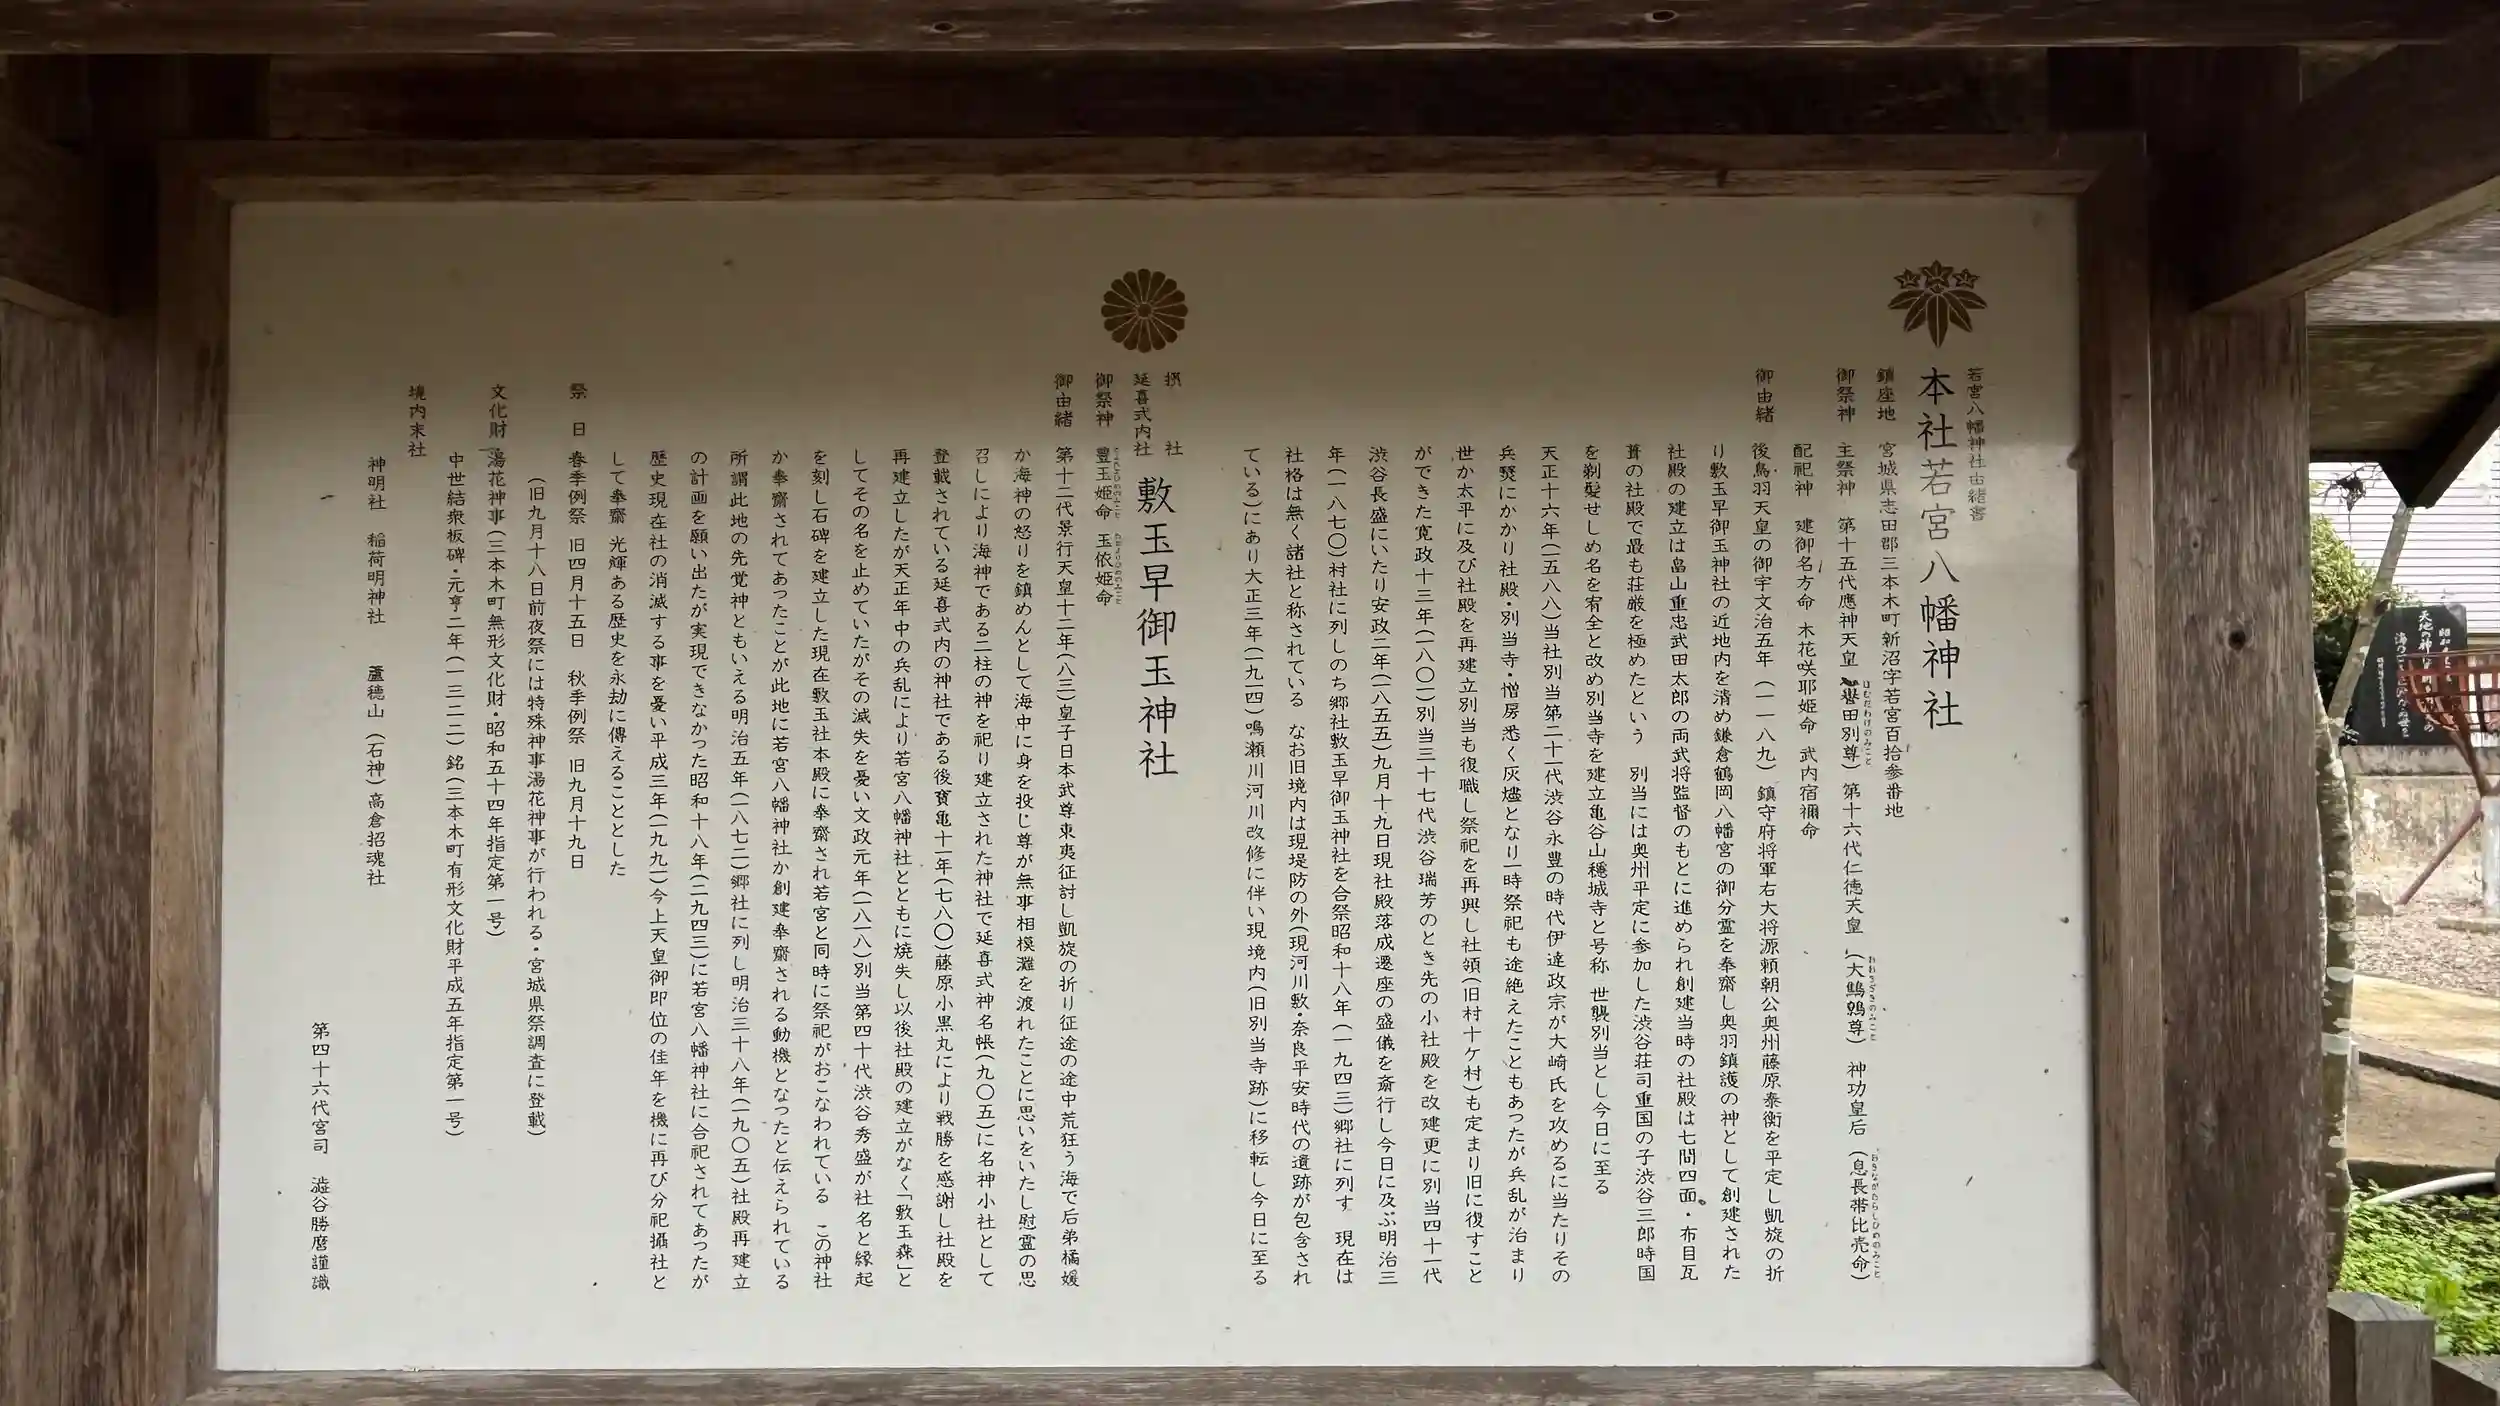 若宮八幡神社由緒書
本社若宮八幡神社
鎮座地 宮城県志田郡三本木町新沼字若宮百拾参番地
御祭神 主祭神 第十五代應神天皇（譽田別尊）第十六代仁徳天皇（大鷦鷯尊）神功皇后（息長帯比売命）
ほむだわけのみこと おおさざきのみこと おきながたらしひめのみこと
配祀神 建御名方命 木花咲耶姫命 武内宿禰命
御由緒 後鳥羽天皇の御宇文治五年（一一八九）鎮守府将軍右大将源頼朝公奥州藤原泰衡を平定し凱旋の折
り敷玉早御玉神社の近地内を清め鎌倉鶴岡八幡宮の御分霊を奉齋し奥羽鎮護の神として創建された
社殿の建立は畠山重忠武田太郎の両武将監督のもとに進められ創建当時の社殿は七間四面・布目瓦
葺の社殿で最も荘厳を極めたという 別当には奥州平定に参加した渋谷荘司重国の子渋谷三郎時国
を剃髪せしめ名を宥全と改め別当寺を建立亀谷山穏城寺と号称 世襲別当とし今日に至る
天正十六年（一五八八）当社別当第二十一代渋谷永豊の時代伊達政宗が大崎氏を攻めるに当たりその
兵燹にかかり社殿・別当寺・僧房悉く灰燼となり一時祭祀も途絶えたこともあったが兵乱が治まり
世か太平に及び社殿を再建立別当も復職し祭祀を再興し社領（旧村十ケ村）も定まり旧に復すこと
ができた寛政十三年（一八〇一）別当三十七代渋谷瑞芳のとき先の小社殿を改建更に別当四十一代
渋谷長盛にいたり安政二年（一八五五）九月十九日現社殿落成遷座の盛儀を斎行し今日に及ぶ明治三
年（一八七〇）村社に列しのち郷社敷玉早御玉神社を合祭昭和十八年（一九四三）郷社に列す 現在は
社格は無く諸社と称されている なお旧境内は現堤防の外（現河川敷・奈良平安時代の遺跡が包含され
ている）にあり大正三年（一九一四）鳴瀬川河川改修に伴い現境内（旧別当寺跡）に移転し今日に至る
摂社
延喜式内社 敷玉早御玉神社
御祭神 豊玉姫命 玉依姫命
御由緒 第十二代景行天皇十二年（八三）皇子日本武尊東夷征討し凱旋の折り征途の途中荒狂う海で后弟橘媛
か海神の怒りを鎮めんとして海中に身を投じ尊が無事相模灘を渡れたことに思いをいたし慰霊の思
召しにより海神である二柱の神を祀り建立された神社で延喜式神名帳（九〇五）に名神小社として
登載されている延喜式内の神社である後寳亀十一年（七八〇）藤原小黒丸により戦勝を感謝し社殿を
再建立したが天正年中の兵乱により若宮八幡神社とともに焼失し以後社殿の建立がなく「敷玉森」と
してその名を止めていたがその滅失を憂い文政元年（一八一八）別当第四十代渋谷秀盛が社名と縁起
を刻し石碑を建立した現在敷玉社本殿に奉齋され若宮と同時に祭祀がおこなわれている この神社
か奉齋されてあったことが此地に若宮八幡神社か創建奉齋される動機となったと伝えられている
所謂此地の先覚神ともいえる明治五年（一八七二）郷社に列し明治三十八年（一九〇五）社殿再建立
の計画を願い出たが実現できなかった昭和十八年（一九四三）に若宮八幡神社に合祀されてあったが
歴史現在社の消滅する事を憂い平成三年（一九九一）今上天皇御即位の佳年を機に再び分祀攝社と
して奉齋 光輝ある歴史を永劫に傳えることとした
祭日 春季例祭 旧四月十五日 秋季例祭 旧九月十九日
（旧九月十八日前夜祭には特殊神事湯花神事が行われる・宮城県祭調査に登載）
文化財 湯花神事（三本木町無形文化財・昭和五十四年指定第一号）
中世結衆板碑・元亨二年（一三二二）銘（三本木町有形文化財平成五年指定第一号）
境内末社
神明社 稲荷明神社 蘆穂山（石神）高倉招魂社
第四十六代宮司 澁谷勝麿謹識
天地の神